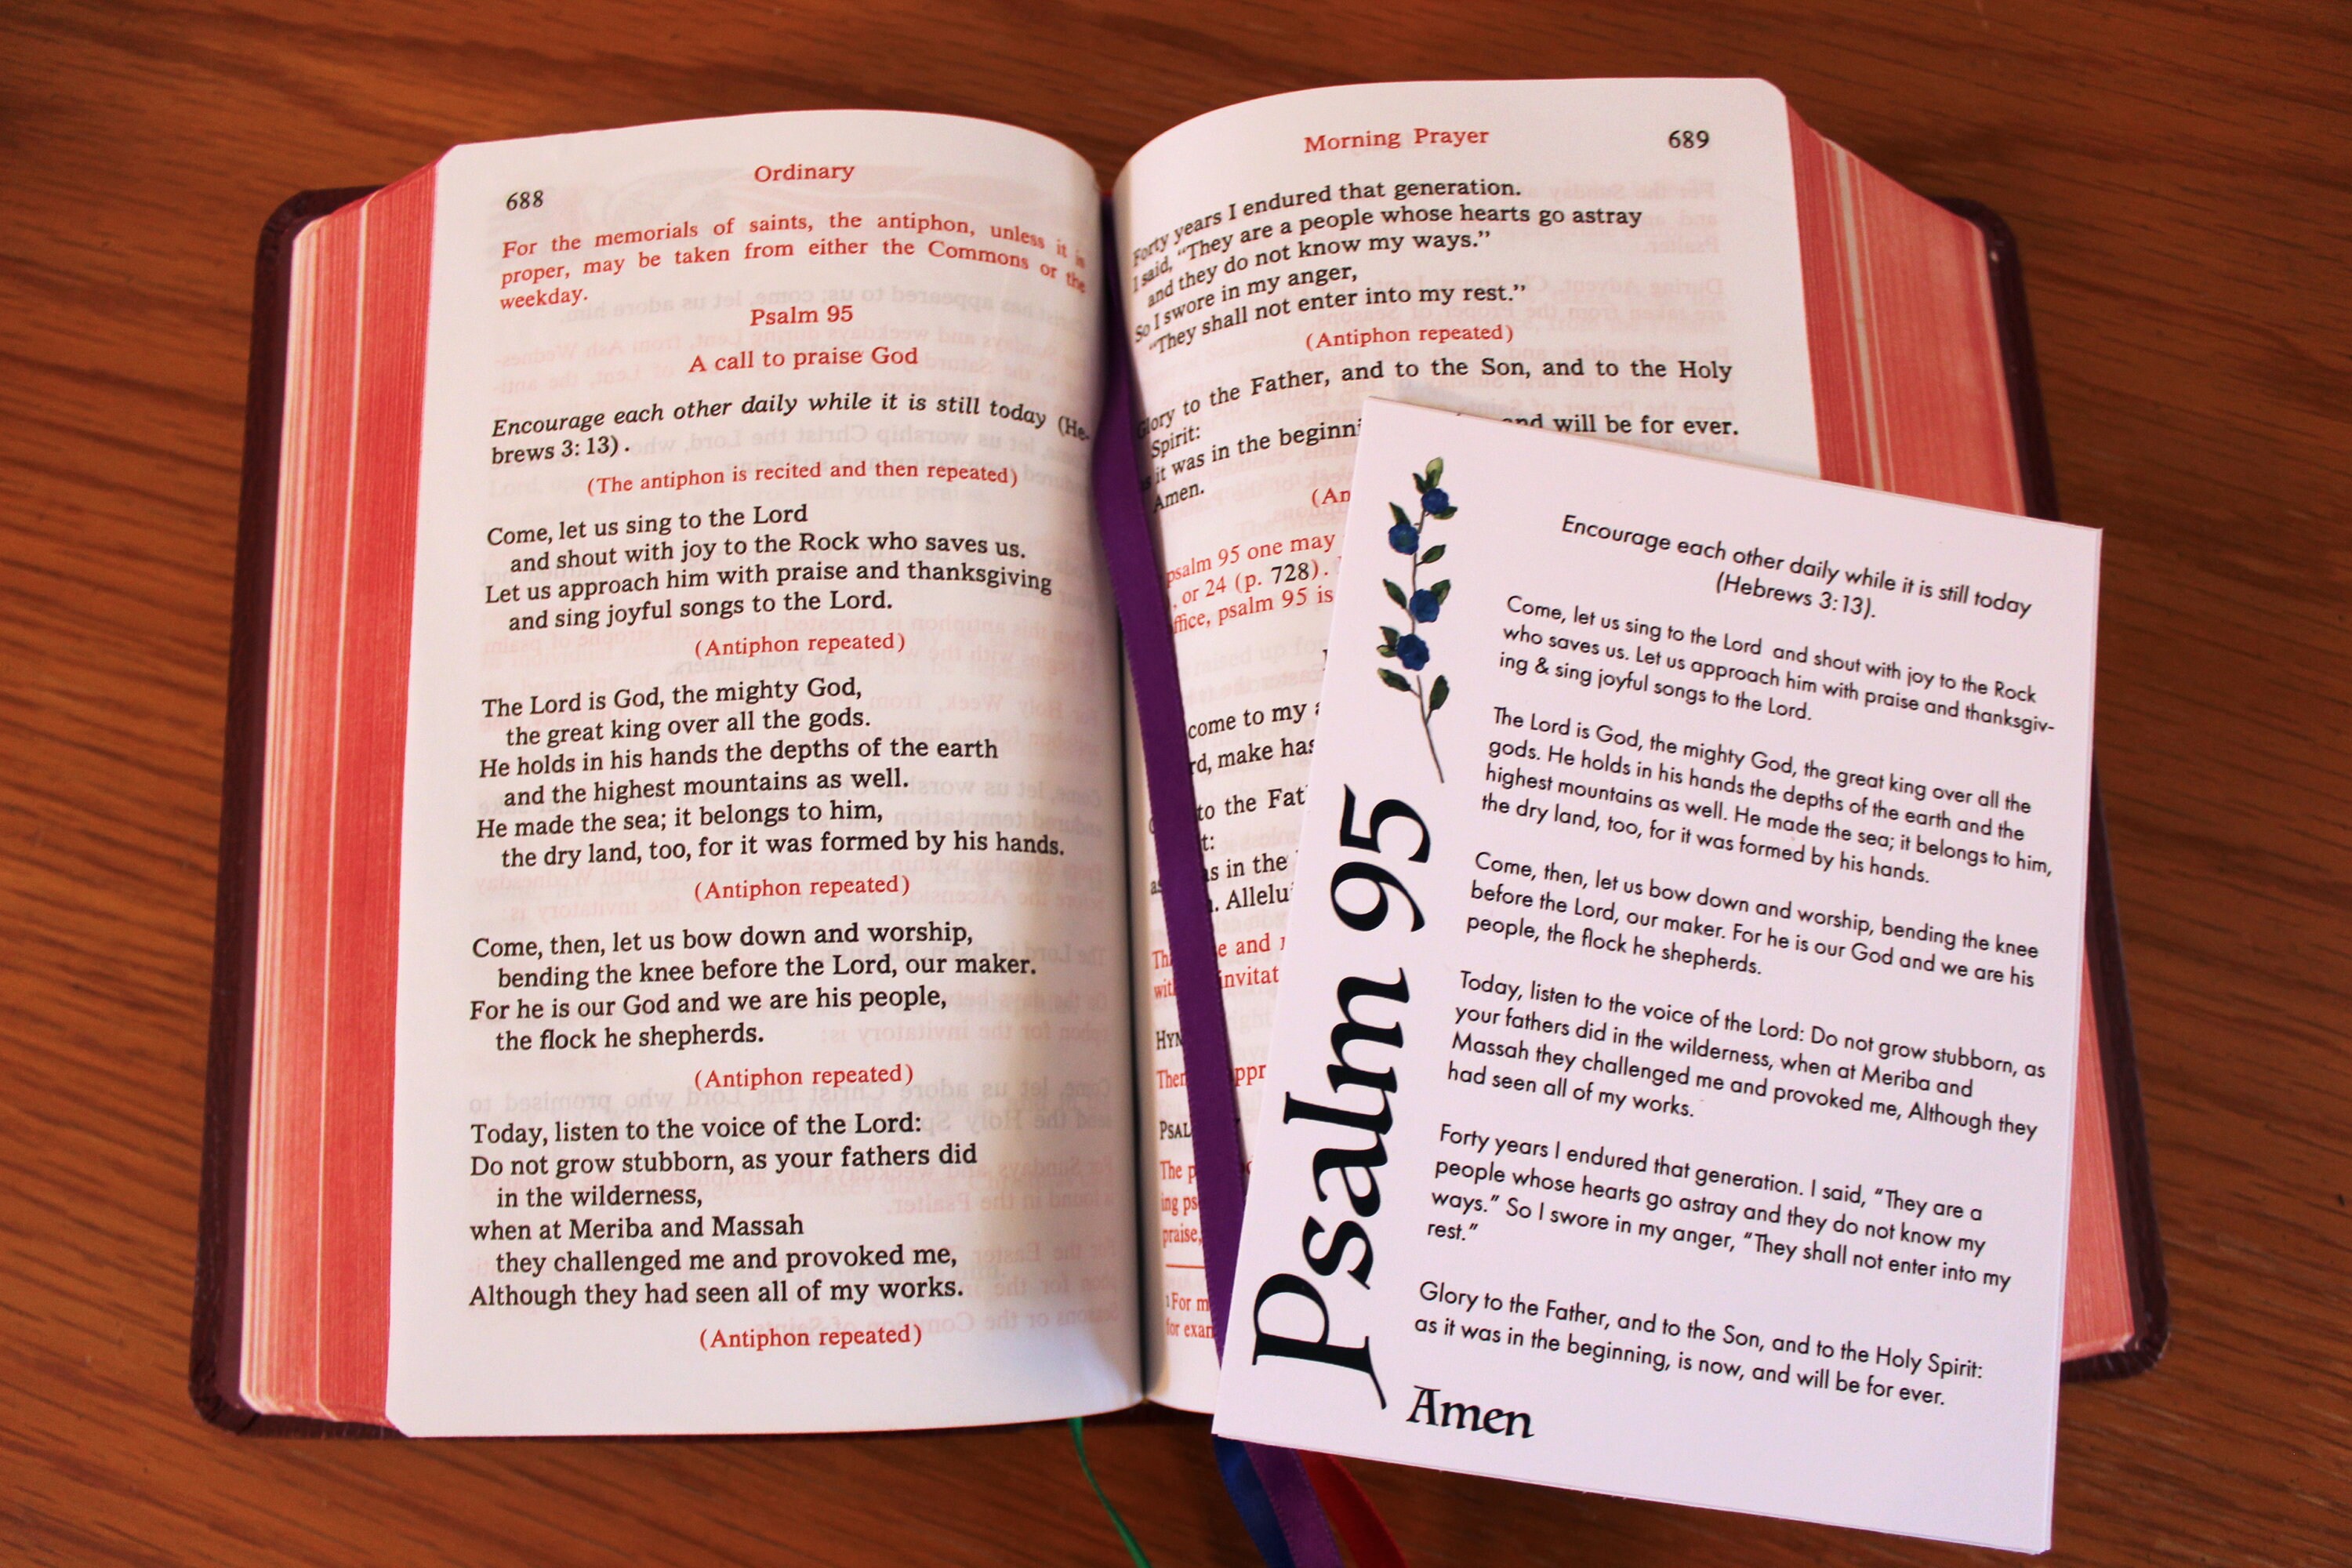 688
Ordinary
For the memorials of saints, the antiphon, unless it is
proper, may be taken from either the Commons or the
weekday.
Psalm 95
A call to praise God
Encourage each other daily while it is still today (He-
brews 3:13).
(The antiphon is recited and then repeated)
Come, let us sing to the Lord
and shout with joy to the Rock who saves us.
Let us approach him with praise and thanksgiving
and sing joyful songs to the Lord.
(Antiphon repeated)
The Lord is God, the mighty God,
the great king over all the gods.
He holds in his hands the depths of the earth
and the highest mountains as well.
He made the sea; it belongs to him,
the dry land, too, for it was formed by his hands.
(Antiphon repeated)
Come, then, let us bow down and worship,
bending the knee before the Lord, our maker.
For he is our God and we are his people,
the flock he shepherds.
(Antiphon repeated)
Today, listen to the voice of the Lord:
Do not grow stubborn, as your fathers did
in the wilderness,
when at Meriba and Massah
they challenged me and provoked me,
Although they had seen all of my works.
(Antiphon repeated)
Morning Prayer
689
Forty years I endured that generation.
I said, "They are a people whose hearts go astray
and they do not know my ways."
So I swore in my anger,
"They shall not enter into my rest."
(Antiphon repeated)
Glory to the Father, and to the Son, and to the Holy
Spirit:
it was in the beginni and will be for ever.
Amen.
(An
psalm 95 one may
, or 24 (p. 728).
ffice, psalm 95 is
come to my
rd, make has
to the Fat
t:
as in the
. Allelu
e and
with invitat
HYM
Then appr
PSAL
The p
ing ps
praise,
1For m
for exan
Psalm 95
Encourage each other daily while it is still today
(Hebrews 3:13).
Come, let us sing to the Lord and shout with joy to the Rock
who saves us. Let us approach him with praise and thanksgiv-
ing & sing joyful songs to the Lord.
The Lord is God, the mighty God, the great king over all the
gods. He holds in his hands the depths of the earth and the
highest mountains as well. He made the sea; it belongs to him,
the dry land, too, for it was formed by his hands.
Come, then, let us bow down and worship, bending the knee
before the Lord, our maker. For he is our God and we are his
people, the flock he shepherds.
Today, listen to the voice of the Lord: Do not grow stubborn, as
your fathers did in the wilderness, when at Meriba and
Massah they challenged me and provoked me, Although they
had seen all of my works.
Forty years I endured that generation. I said, "They are a
people whose hearts go astray and they do not know my
ways." So I swore in my anger, "They shall not enter into my
rest."
Glory to the Father, and to the Son, and to the Holy Spirit:
as it was in the beginning, is now, and will be for ever.
Amen